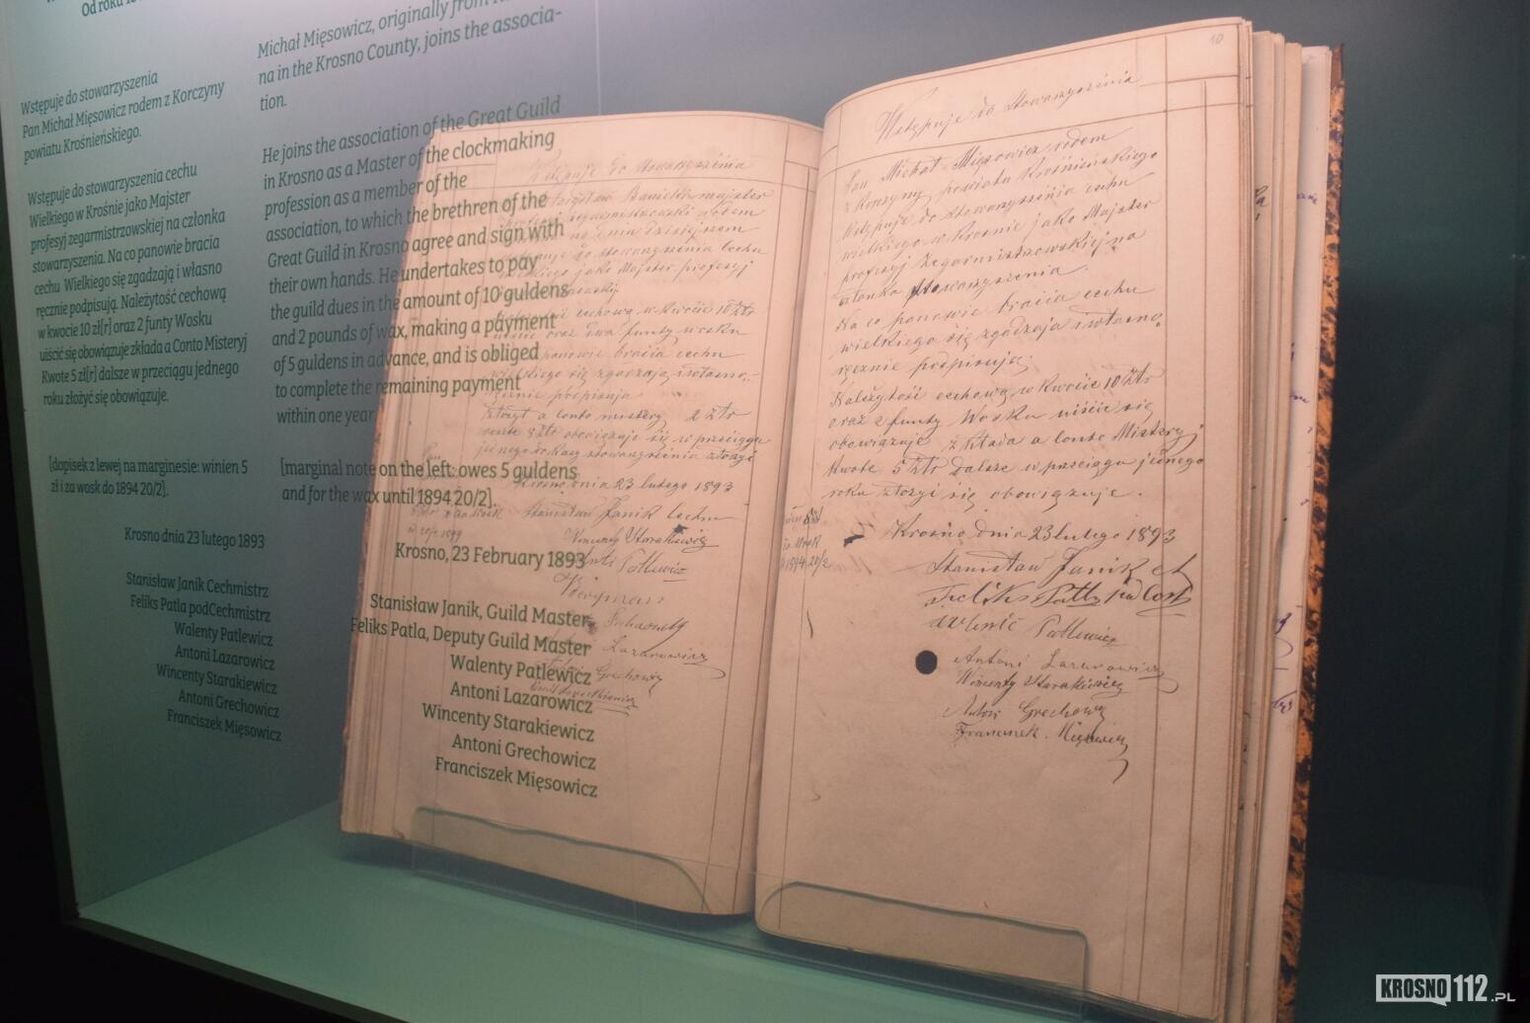 Od roku
Wstępuje do stowarzyszenia
Pan Michał Mięsowicz rodem z Korczyny
powiatu Krośnieńskiego.
Wstępuje do stowarzyszenia cechu
Wielkiego w Krośnie jako Majster
profesyj zegarmistrzowskiej na członka
stowarzyszenia. Na co panowie bracia
cechu Wielkiego się zgadzają i własno
ręcznie podpisują. Należytość cechową
w kwocie 10 zł[r] oraz 2 funty Wosku
uiścić się obowiązuje zkłada a Conto Misteryj
Kwote 5 zł[r] dalsze w przeciągu jednego
roku złożyć się obowiązuje.
[dopisek z lewej na marginesie: winien 5
zł i za wosk do 1894 20/2].
Krosno dnia 23 lutego 1893
Stanisław Janik Cechmistrz
Feliks Patla podCechmistrz
Walenty Patlewicz
Antoni Lazarowicz
Wincenty Starakiewicz
Antoni Grechowicz
Franciszek Mięsowicz
Michał Mięsowicz, originally from
na in the Krosno County, joins the associa-
tion.
He joins the association of the Great Guild
in Krosno as a Master of the clockmaking
profession as a member of the
association, to which the brethren of the
Great Guild in Krosno agree and sign with
their own hands. He undertakes to pay
the guild dues in the amount of 10 guldens
and 2 pounds of wax, making a payment
of 5 guldens in advance, and is obliged
to complete the remaining payment
within one year
[marginal note on the left: owes 5 guldens
and for the wax until 1894 20/2].
Krosno, 23 February 1893
Stanisław Janik, Guild Master
Feliks Patla, Deputy Guild Master
Walenty Patlewicz
Antoni Lazarowicz
Wincenty Starakiewicz
Antoni Grechowicz
Franciszek Mięsowicz
do stowarzyszenia
majster
rodem
do stowarzyszenia cechu
jako Majster profesyj
cechową w kwocie 10 złr
oraz dwa funty wosku
panowie bracia cechu
się zgadzają i własno-
ręcznie podpisują
a conto mistery 2 złr
obowiązuje się w przeciągu
stowarzyszenia złożyć
Krosno dnia 23 lutego 1893
Stanisław Janik cechm
Wincenty Starakiewicz
Patlewicz
Lazarowicz
Grechowicz
10
Wstępuje do Stowarzyszenia
Pan Michał Mięsowicz rodem
z Korczyny powiatu Krośnieńskiego
Wstępuje do stowarzyszenia cechu
wielkiego w Krośnie jako Majster
profesyj Zegarmistrzowskiej na
członka stowarzyszenia.
Na co panowie bracia cechu
wielkiego się zgadzają i własno
ręcznie podpisują.
Należytość cechową w kwocie 10 złr
oraz 2 funty Wosku uiścić się
obowiązuje zkłada a conto Misteryj
Kwote 5 złr dalsze w przeciągu jednego
roku złożyć się obowiązuje.
1894 20/2
Krosno dnia 23 lutego 1893
Stanisław Janik
Feliks Patla
Patlewicz
Antoni Lazarowicz
Wincenty Starakiewicz
Antoni Grechowicz
Franciszek Mięsowicz
KROSNO112.PL